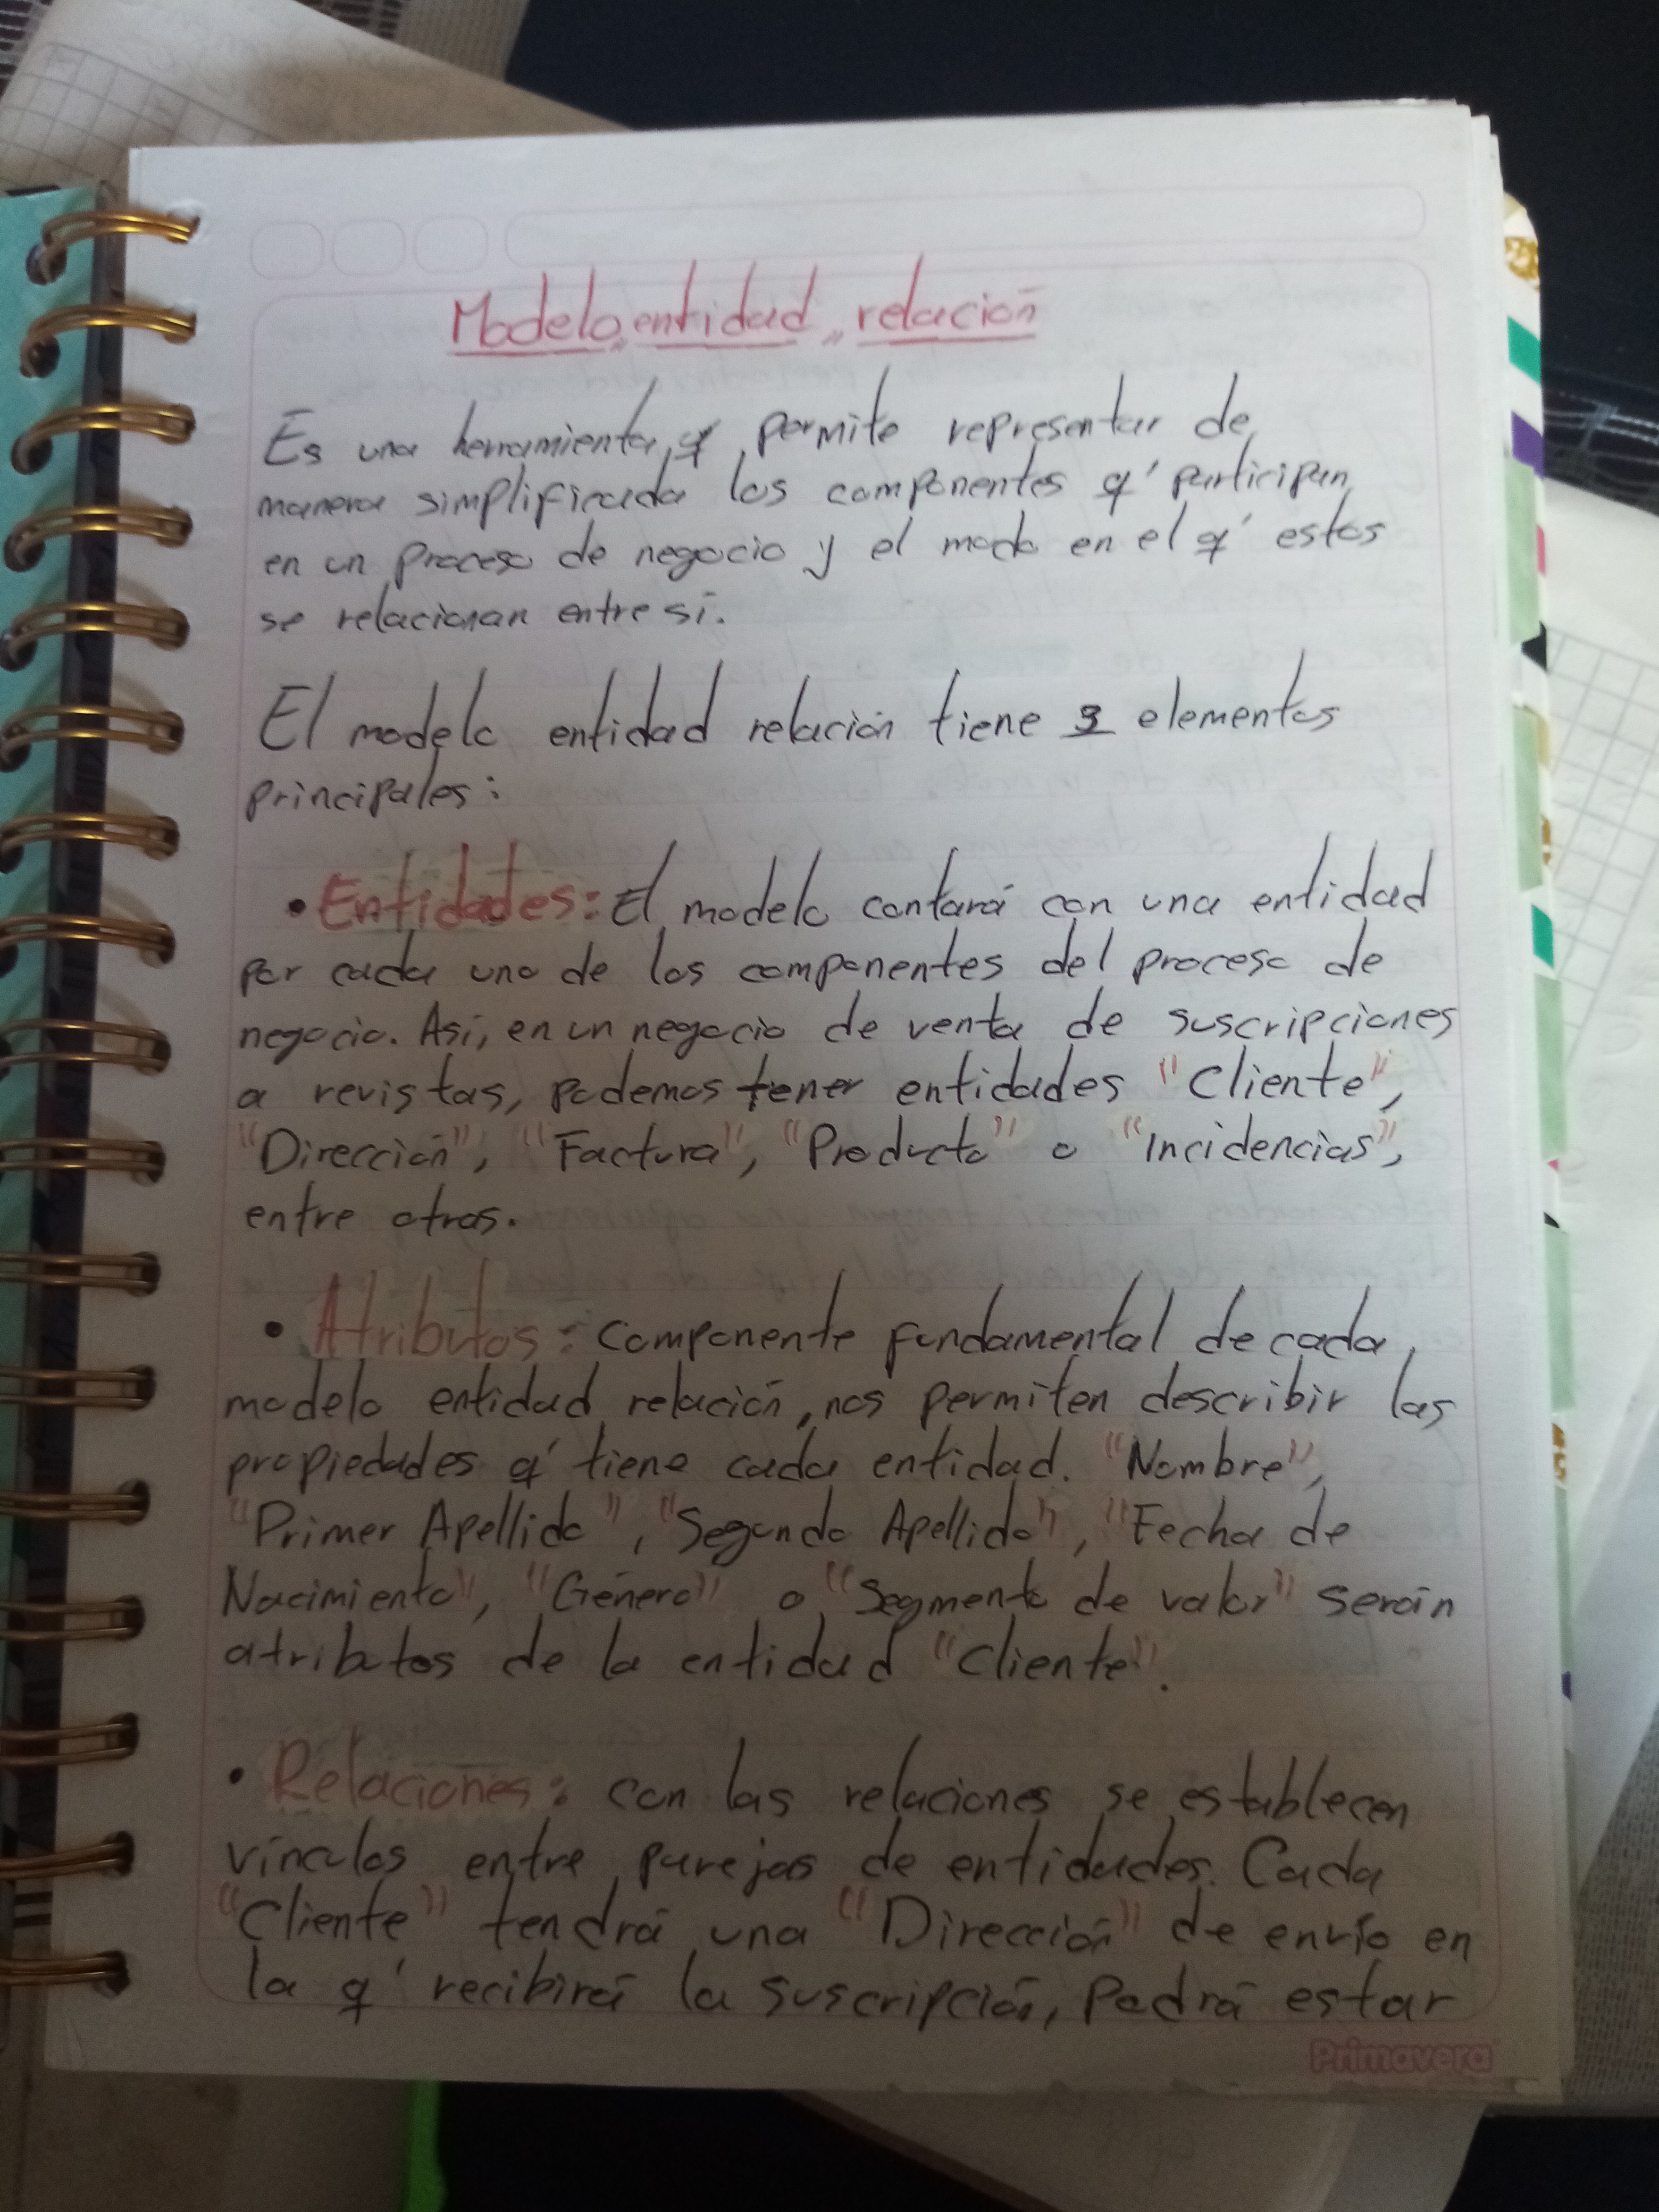 Modelo entidad relación
Es una herramienta q' permite representar de
manera simplificada los componentes q' participan
en un proceso de negocio y el modo en el q' estos
se relacionan entre sí.
El modelo entidad relación tiene 3 elementos
principales:
• Entidades: El modelo contará con una entidad
por cada uno de los componentes del proceso de
negocio. Así, en un negocio de venta de suscripciones
a revistas, podemos tener entidades "Cliente",
"Dirección", "Factura", "Producto" o "Incidencias",
entre otros.
• Atributos: Componente fundamental de cada
modelo entidad relación, nos permiten describir las
propiedades q' tiene cada entidad. "Nombre",
"Primer Apellido", "Segundo Apellido", "Fecha de
Nacimiento", "Género" o "Segmento de valor" serán
atributos de la entidad "Cliente".
• Relaciones: con las relaciones se establecen
vínculos entre parejas de entidades. Cada
"Cliente" tendrá una "Dirección" de envío en
la q' recibirá la suscripción, Podrá estar
Primavera